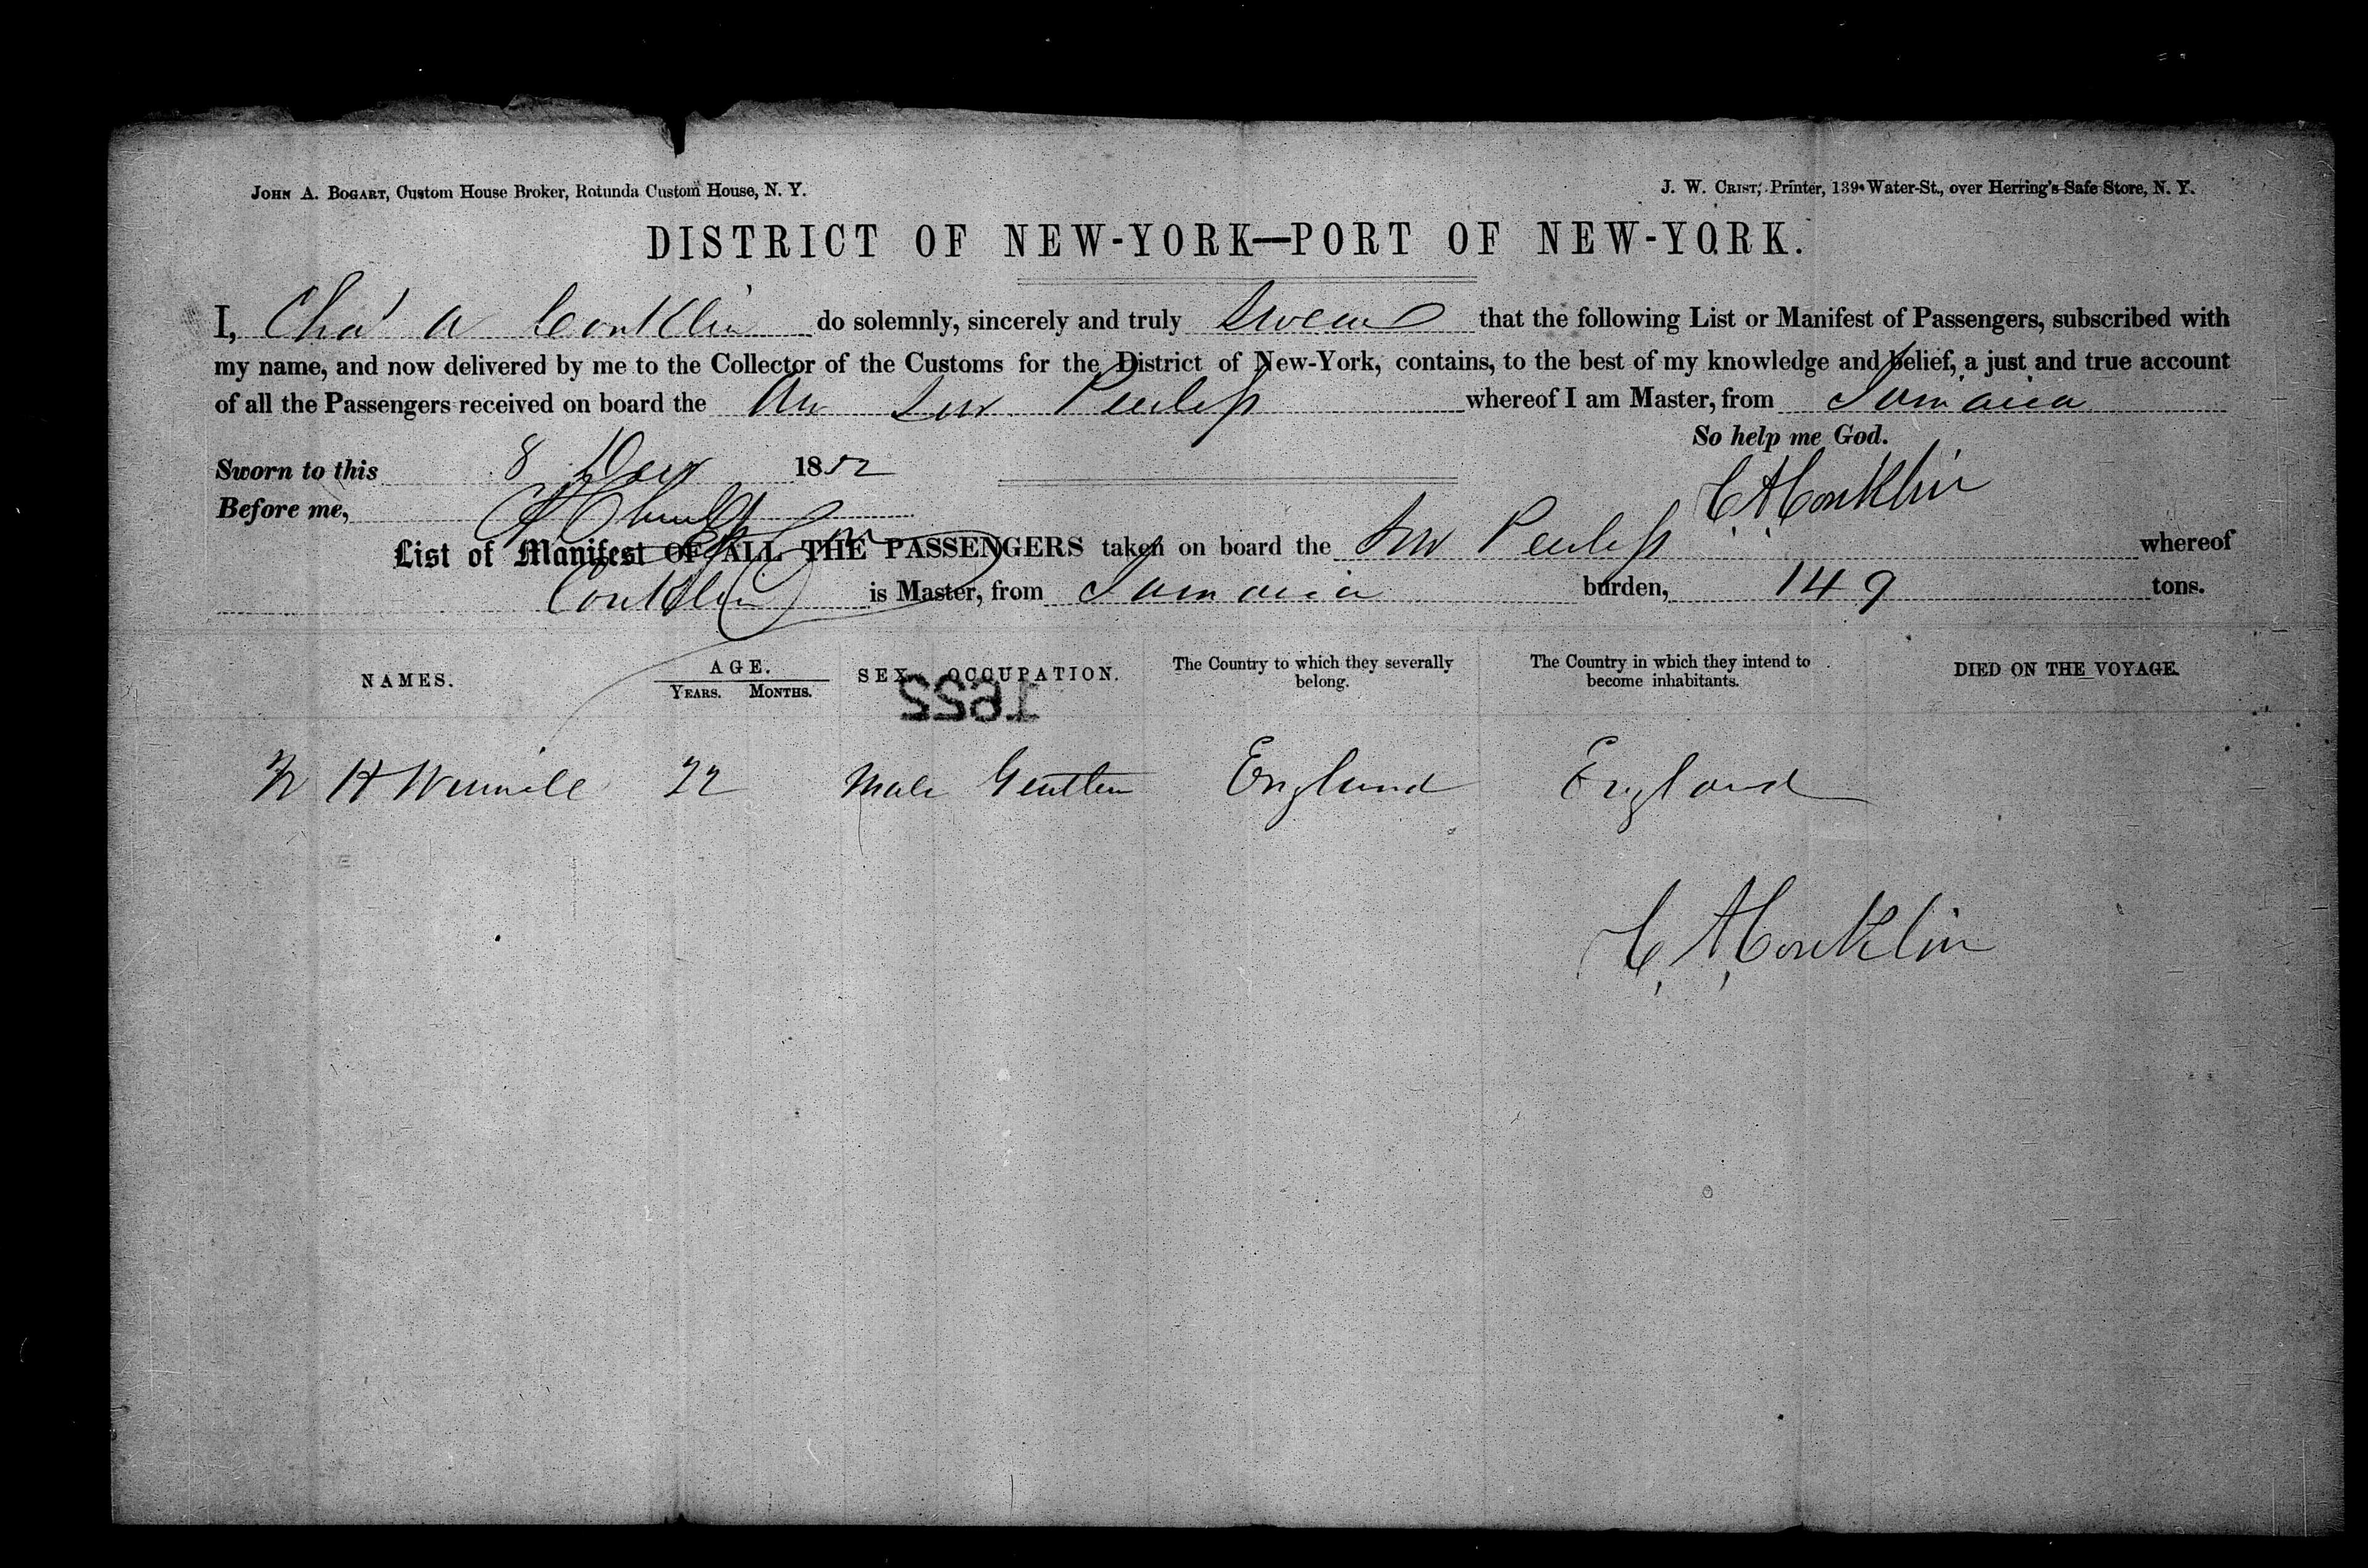 JOHN A. BOGART, Custom House Broker, Rotunda Custom House, N. Y.
J. W. CRIST, Printer, 139 Water-St., over Herring's Safe Store, N. Y.
DISTRICT OF NEW-YORK—PORT OF NEW-YORK.
I, Chas A Conklin do solemnly, sincerely and truly Swear that the following List or Manifest of Passengers, subscribed with
my name, and now delivered by me to the Collector of the Customs for the District of New-York, contains, to the best of my knowledge and belief, a just and true account
of all the Passengers received on board the Am Schr Peerless whereof I am Master, from Jamaica
So help me God.
Sworn to this 8 1852
C A Conklin
Before me,
List or Manifest OF ALL THE PASSENGERS taken on board the Schr Peerless whereof
Conklin is Master, from Jamaica burden, 149 tons.
NAMES. AGE. SEX. OCCUPATION. The Country to which they severally belong. The Country in which they intend to become inhabitants. DIED ON THE VOYAGE.
YEARS. MONTHS.
1622
H 22 Male Gentlem England England
C. A. Conklin